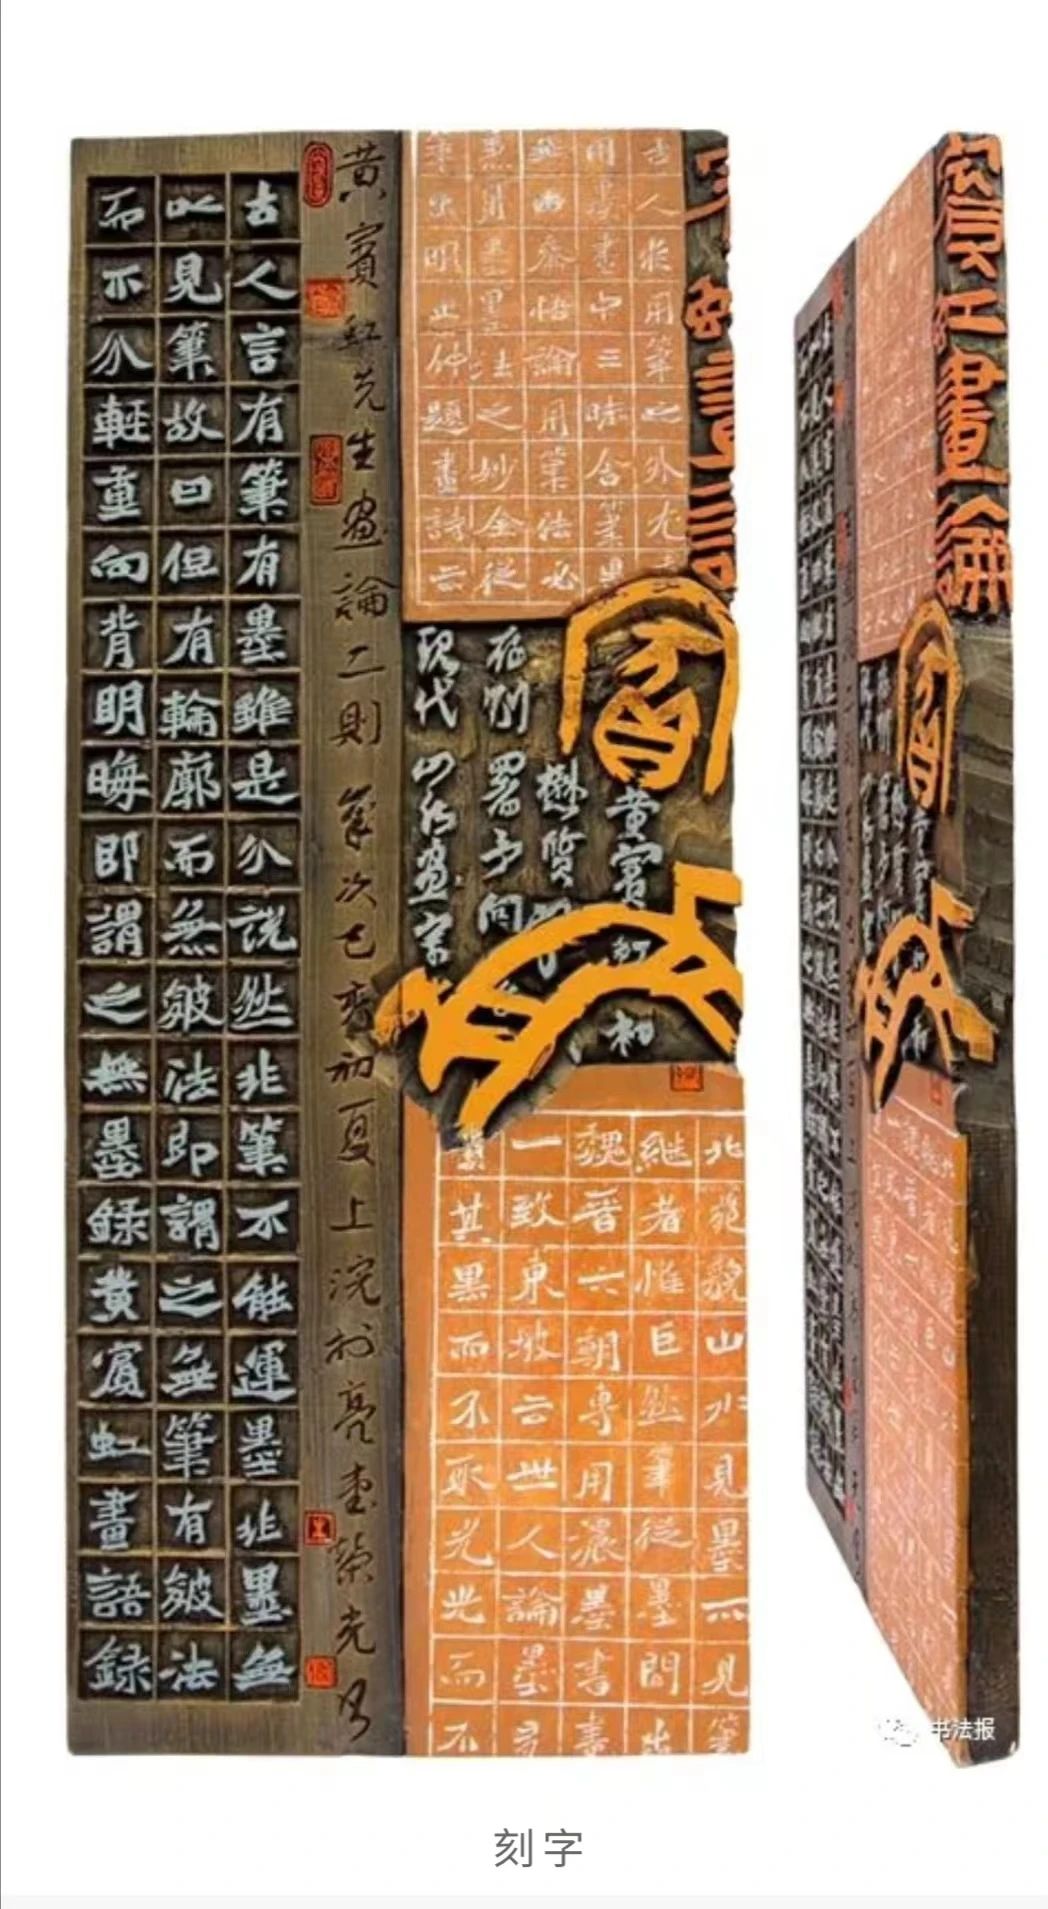 賓虹畫論
古人於用筆之外尤
用墨畫中三昧合筆墨
無由參悟論用筆法必
兼用墨墨法之妙全從
筆出明止仲題畫詩云
黄賓虹 初
懋質
存別署予向
現代山水畫宗
北苑貌山水見墨不見筆
継者惟巨然筆從墨間出
魏晉六朝專用濃墨書畫
一致東坡云世人論墨多
貴其黑而不取光光而不
黄賓虹先生畫論二則歲次己亥初夏上浣於
古人言有筆有墨雖是分説然非筆不能運墨非墨無
以見筆故曰但有輪廓而無皴法即謂之無筆有皴法
而不分輕重向背明晦即謂之無墨録黄賓虹畫語録
書法报
刻字